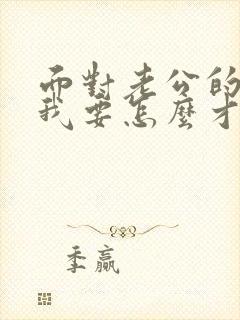 而對老公的
我要怎麼才
季贏